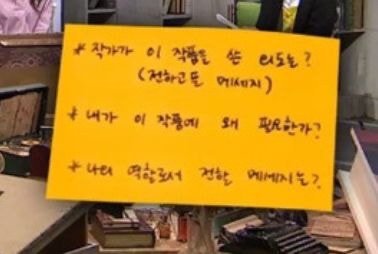 * 작가가 이 작품을 쓴 의도는?
(전하고픈 메세지)
* 내가 이 작품에 왜 필요한가?
* 나의 역할로서 전할 메세지는?